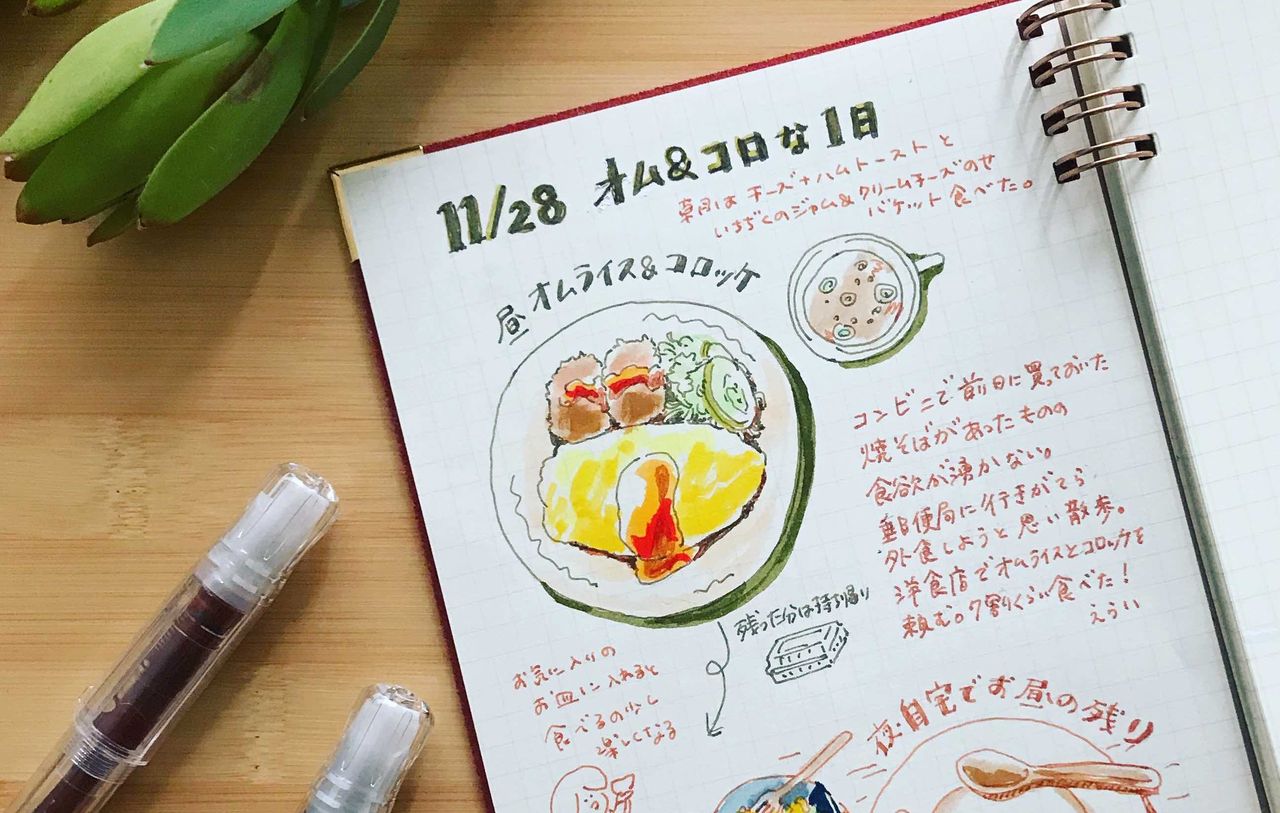 11/28 オム&コロな1日
朝はチーズ+ハムトーストと
いちぢくのジャム&クリームチーズのせ
バケット食べた。
昼 オムライス&コロッケ
コンビニで前日に買っておいた
焼そばがあったものの
食欲が湧かない。
郵便局に行きがてら
外食しようと思い散歩。
洋食店でオムライスとコロッケを
頼む。7割くらい食べた!
えらい
残った分は持ち帰り
お気に入りの
お皿に入れると
食べるの少し
楽しくなる
夜 自宅でお昼の残り